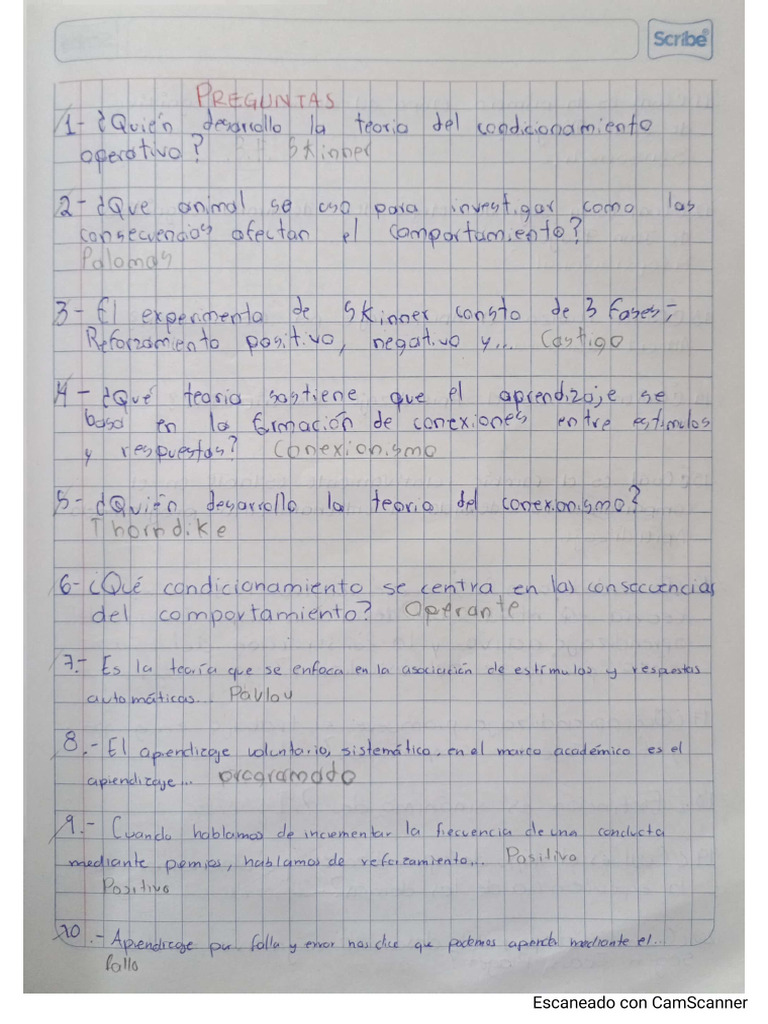 Scribe
PREGUNTAS
1- ¿Quién desarollo la teoria del condicionamiento
operativo? Skinner
2- ¿Que animal se uso para investigar como las
consecuencias afectan el comportamiento?
Palomas
3- El experimento de Skinner consto de 3 fases;
Reforzamiento positivo, negativo y... Castigo
4- ¿Qué teoria sostiene que el aprendizaje se
basa en la formación de conexiones entre estimulos
y respuestas? Conexionismo
5- ¿Quién desarollo la teoria del conexonismo?
Thorndike
6- ¿Qué condicionamiento se centra en las consecuencias
del comportamiento? Operante
7.- Es la teoría que se enfoca en la asociación de estímulos y respuestas
automáticas... Pavlov
8.- El aprendizaje voluntario, sistemático, en el marco académico es el
aprendizaje... programado
9.- Cuando hablamos de incrementar la frecuencia de una conducta
mediante pemios, hablamos de reforzamiento... Positivo
Positivo
10.- Aprendizaje por falla y error nos dice que podemos aprender mediante el...
fallo
Escaneado con CamScanner